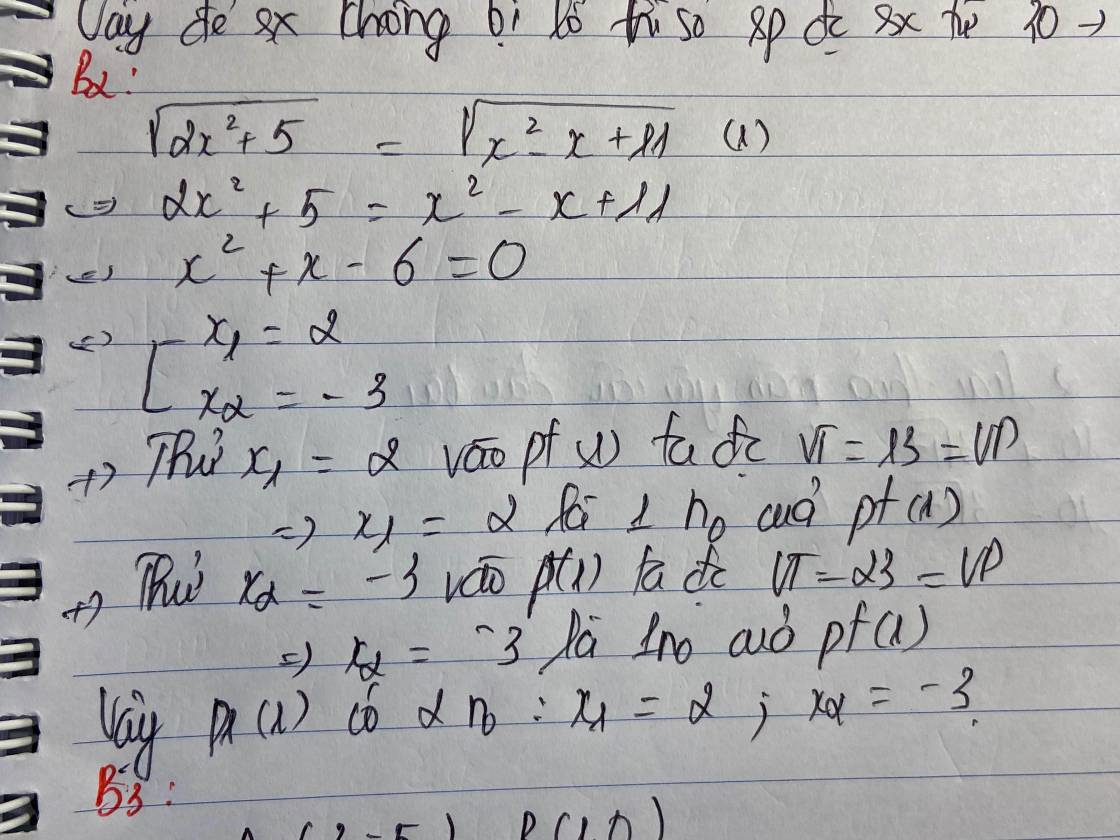 Vậy để sx không bị lỗ thì số sp đc sx từ 30 →
B2:
√(2x² + 5) = √(x² - x + 11) (1)
=> 2x² + 5 = x² - x + 11
=> x² + x - 6 = 0
<=> [ x₁ = 2
x₂ = -3
+) Thử x₁ = 2 vào pt (1) ta đc VT = 13 = VP
=> x₁ = 2 là 1 no của pt (1)
+) Thử x₂ = -3 vào pt(1) ta đc VT = 23 = VP
=> x₂ = -3 là 1 no của pt (1)
Vậy pt (1) có 2 no : x₁ = 2 ; x₂ = -3.
B3: